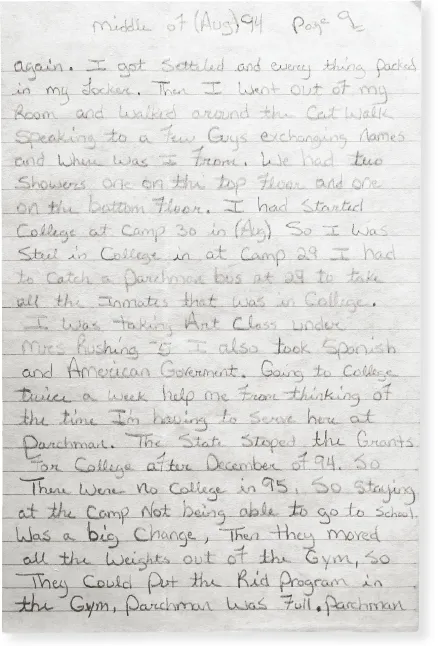 middle of (Aug) 94 Page 9
again. I got Settled and every thing packed
in my Locker. Then I Went out of my
Room and Walked around the Cat Walk
Speaking to a Few Guys exchanging Names
and Where Was I From. We had two
Showers one on the top Floor and one
on the bottom Floor. I had Started
College at Camp 30 in (Aug) So I Was
Still in College in at Camp 29 I had
to Catch a Parchman bus at 29 to take
all the Inmates that was in College.
I Was taking Art Class under
Rushing I also took Spanish
and American Goverment. Going to College
twice a Week help me From thinking of
the time I'm having to Serve here at
Parchman. The State Stoped the Grants
For College after December of 94. So
There Were No College in 95, So Staying
at the Camp Not being able to go to School
Was a big Change, Then they moved
all the Weights out of the Gym, So
They Could Put the Rid Program in
the Gym, Parchman Was Full. Parchman